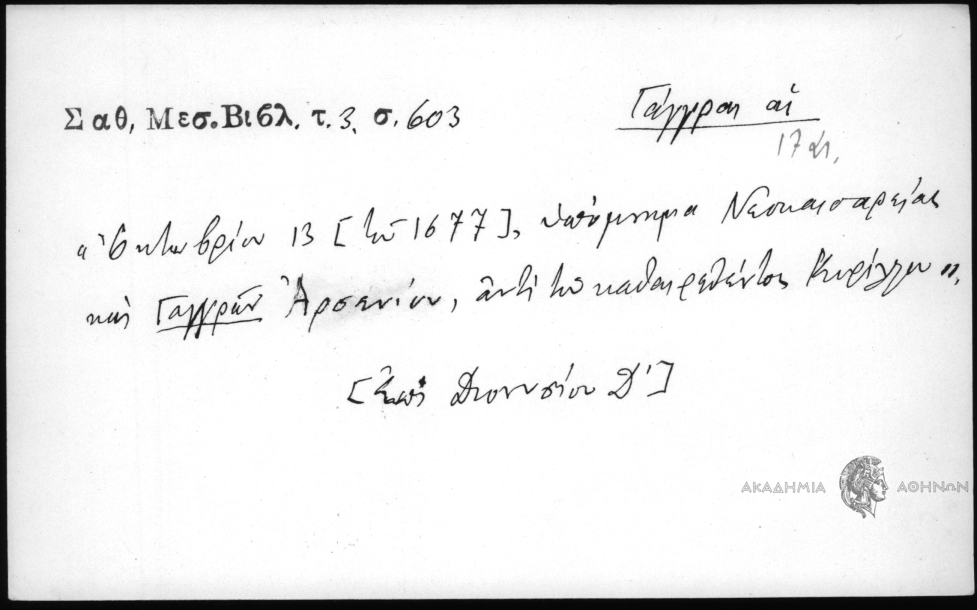 Σαθ, Μεσ. Βιβλ. τ. 3, σ. 603
Γάγγραι αἱ
17 αι.
"Ὀκτωβρίου 13 [τοῦ 1677], ὑπόμνημα Νεοκαισαρείας
καὶ Γαγγρῶν Ἀρσενίου, ἀντὶ τοῦ καθαιρεθέντος Κυρίλλου",
[ἐπὶ Διονυσίου Δ']
ΑΚΑΔΗΜΙΑ ΑΘΗΝΩΝ